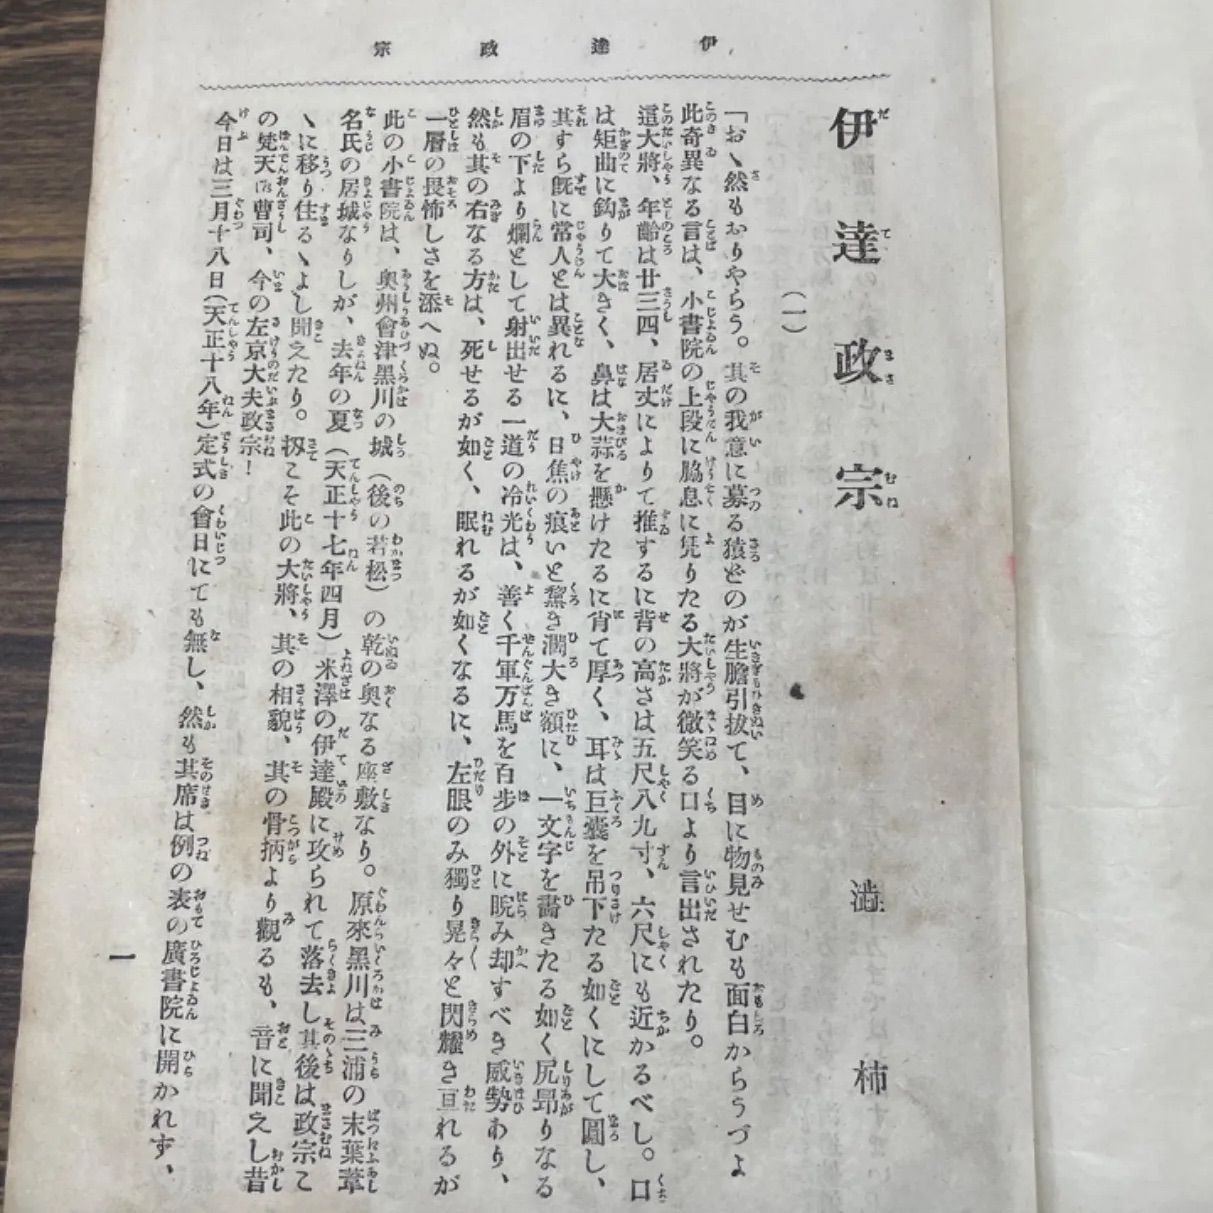 伊達政宗
伊達政宗
澁柿
(一)
「おゝ然もおりやらう。其の我意に募る猿どのが生膽引拔て、目に物見せむも面白からうづよ
此奇異なる言は、小書院の上段に脇息に凭りたる大將が微笑る口より言出されたり。
這大將、年齡は廿三四、居丈によりて推するに背の高さは五尺八九寸、六尺にも近かるべし。口
は矩曲に鈎りて大きく、鼻は大蒜を懸けたるに肖て厚く、耳は巨囊を吊下たる如くにして圓し、
其すら既に常人とは異れるに、日焦の痕いと黧き濶大き額に、一文字を書きたる如く尻昂りなる
眉の下より爛として射出せる一道の冷光は、善く千軍万馬を百步の外に睨み却すべき威勢あり、
然も其の右なる方は、死せるが如く、眠れるが如くなるに、左眼のみ獨り晃々と閃耀き亘れるが
一層の畏怖しさを添へぬ。
此の小書院は、奧州會津黑川の城(後の若松)の乾の奧なる座敷なり。原來黑川は、三浦の末葉葦
名氏の居城なりしが、去年の夏(天正十七年四月)米澤の伊達殿に攻られて落去し其後は政宗こ
ゝに移り住るゝよし聞えたり。扨こそ此の大將、其の相貌、其の骨柄より觀るも、音に聞えし昔
の梵天曹司、今の左京大夫政宗!
今日は三月十八日(天正十八年)定式の會日にても無し、然も其席は例の表の廣書院に開かれず、
一